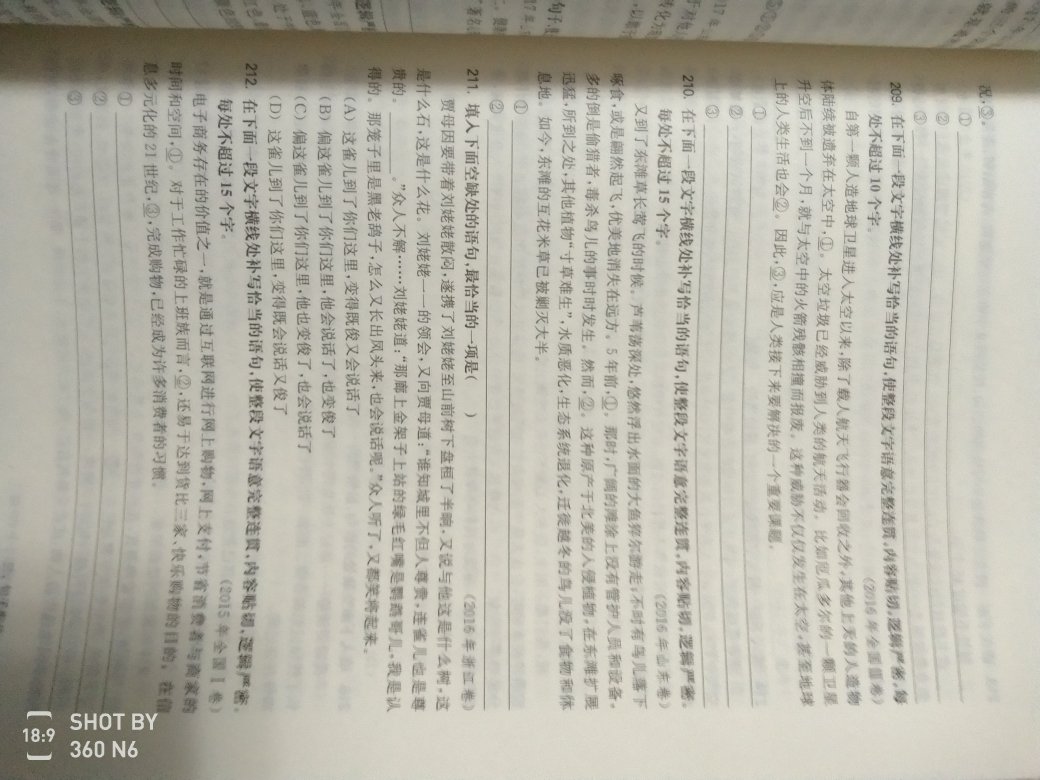 况,③。
①
②
③
209. 在下面一段文字横线处补写恰当的语句,使整段文字语意完整连贯,内容贴切,逻辑严密,每
处不超过 10 个字。(2016 年全国Ⅲ卷)
自第一颗人造地球卫星进入太空以来,除了载人航天飞行器会回收之外,其他上天的人造物
体陆续被遗弃在太空中,①。太空垃圾已经威胁到人类的航天活动。比如厄瓜多尔的一颗卫星
升空后不到一个月,就与太空中的火箭残骸相撞而报废。这种威胁不仅仅发生在太空,甚至地球
上的人类生活也会②。因此,③,应是人类接下来要解决的一个重要课题。
①
②
③
210. 在下面一段文字横线处补写恰当的语句,使整段文字语意完整连贯,内容贴切,逻辑严密。
每处不超过 15 个字。(2016 年山东卷)
又到了东滩草长莺飞的时候。芦苇荡深处,悠然浮出水面的大鱼倏尔游走;不时有鸟儿落下
啄食,或是翩然起飞,优美地消失在远方。5 年前,①。那时,广阔的滩涂上没有管护人员和设备,
多的倒是偷猎者,毒杀鸟儿的事时时发生。然而,②。这种原产于北美的入侵植物,在东滩扩展
迅猛,所到之处,其他植物“寸草难生”,水质恶化,生态系统退化,迁徙越冬的鸟儿没了食物和休
息地。如今,东滩的互花米草已被剿灭大半。
①
②
211. 填入下面空缺处的语句,最恰当的一项是( )(2016 年浙江卷)
贾母因要带着刘姥姥散闷,遂携了刘姥姥至山前树下盘桓了半晌,又说与他这是什么树,这
是什么石,这是什么花。刘姥姥一一的领会,又向贾母道:“谁知城里不但人尊贵,连雀儿也是尊
贵的。______。”众人不解……刘姥姥道:“那廊上金架子上站的绿毛红嘴是鹦鹉哥儿,我是认
得的。那笼子里是黑老鸹子,怎么又长出凤头来,也会说话呢。”众人听了,又都笑将起来。
(A) 这雀儿到了你们这里,变得既俊又会说话了
(B) 偏这雀儿到了你们这里,他会说话了,也变俊了
(C) 偏这雀儿到了你们这里,他也变俊了,也会说话了
(D) 这雀儿到了你们这里,变得既会说话又俊了
212. 在下面一段文字横线处补写恰当的语句,使整段文字语意完整连贯,内容贴切,逻辑严密。
每处不超过 15 个字。(2015 年全国Ⅰ卷)
电子商务存在的价值之一,就是通过互联网进行网上购物,网上支付,节省消费者与商家的
时间和空间,①。对于工作忙碌的上班族而言,②,还易于达到货比三家、快乐购物的目的。在信
息多元化的 21 世纪,③,完成购物,已经成为许多消费者的习惯。
①
②
③
18:9
SHOT BY
360 N6